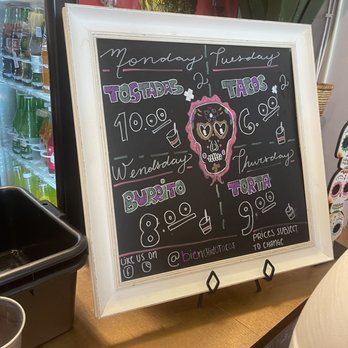 Monday Tuesday
TOSTADAS 2 TACOS 2
10.00 6.00
Wendsday Thursday
BURRITO TORTA
8.00 9.00
LIKE US ON
PRICES SUBJECT
TO CHANGE